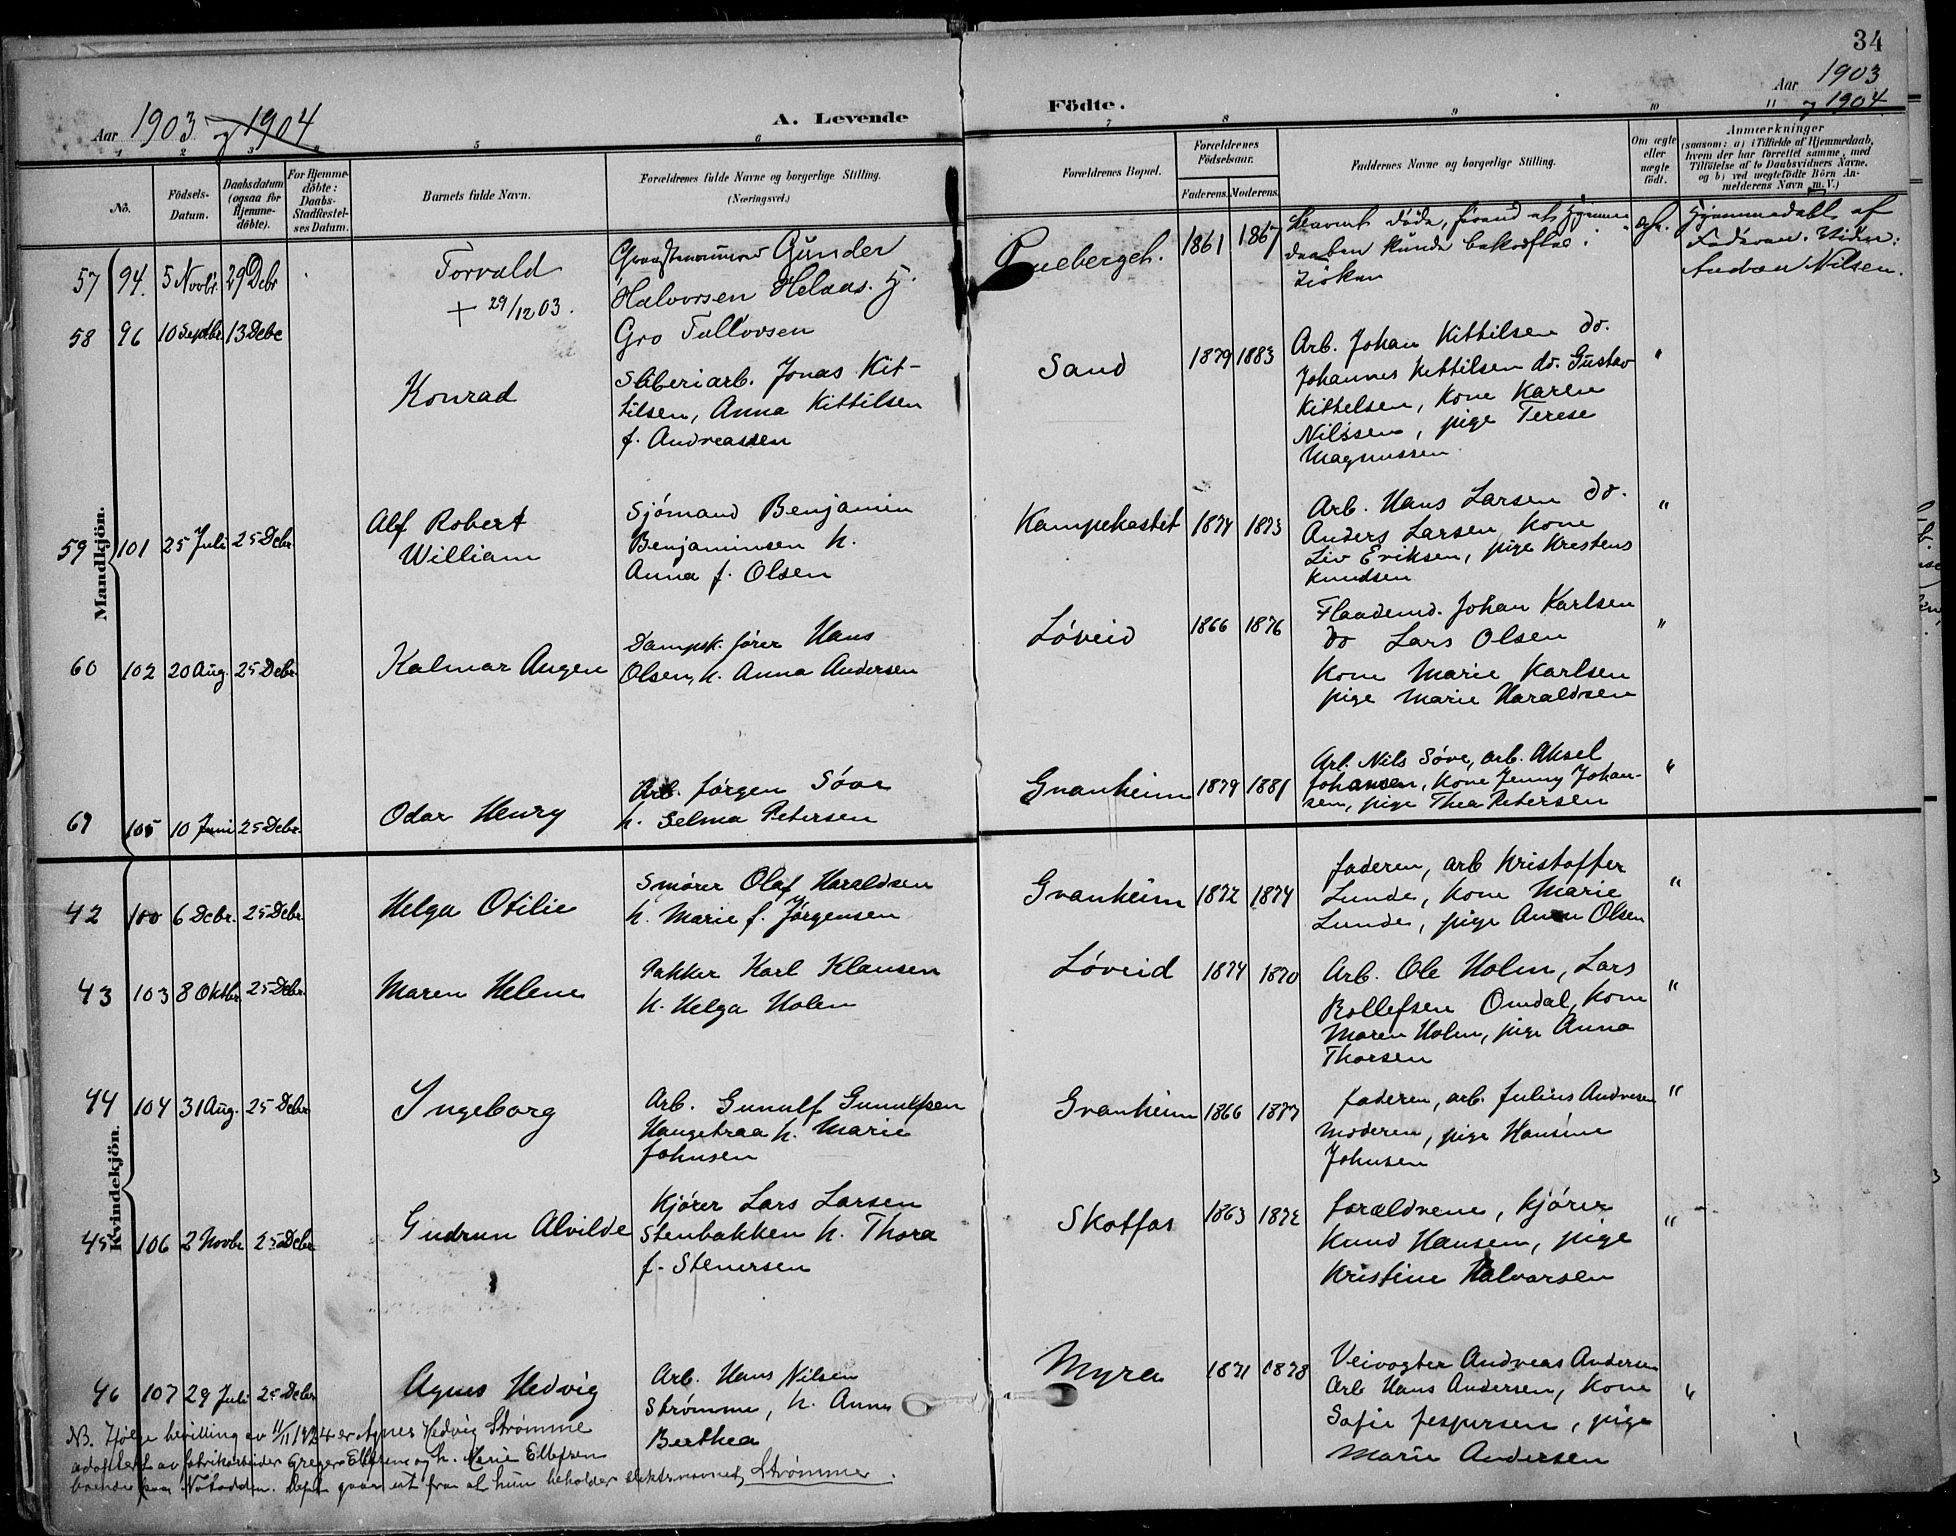 34
Aar 1903 og 1904
A. Levende
Födte.
Aar 1903
og 1904
1 2 3 5 6 7 8 9 10 11
No.
Födsels-Datum.
Daabsdatum (ogsaa for Hjemme-döbte).
For Hjemme-döbte: Daabs-Stadfæstel-ses Datum.
Barnets fulde Navn.
Forældrenes fulde Navne og borgerlige Stilling. (Næringsvei.)
Forældrenes Bopæl.
Forældrenes Födselsaar.
Faderens. Moderens.
Faddernes Navne og borgerlige Stilling.
Om ægte eller uægte födt.
Anmærkninger
(saasom: a) i Tilfælde af Hjemmedaab,
hvem der har forrettet samme, med
Tilföielse af to Daabsvidners Navne,
og b) ved uægtefödte Börn An-
melderens Navn m. V.)
Mandkjön.
57 94. 5 Novbr. 29 Debr
Torvald
+ 29/12 03.
Gunder
Halvorsen Helaas. H.
Gro Tollovsen
1861 1867
døde, förend
daaben kunde bekræftes i
Kirken
Hjemmedøbt af
Faderen. Vidn:
Nilsen.
58 96 10 Septbr 13 Debr
Konrad
Sliberiarb. Jonas Kit-
tilsen, Anna Kittilsen
f. Andreassen
Sand
1879 1883
Arb. Johan Kittilsen do.
Johannes Kittilsen do. Gustav
Kittelsen, Kone Karen
Nilssen, pige Terese
Magnussen
"
59 101 25 Juli 25 Debr
Alf Robert
William
Sjömand Benjamin
Benjaminsen h.
Anna f. Olsen
Kampekastet
1874 1873
Arb. Hans Larsen do.
Anders Larsen, Kone
Liv Eriksen, pige Krestens
Knudsen
"
60 102 20 Aug. 25 Debr.
Kalmar Augen
Dampsk. fører Hans
Olsen, h. Anna Andersen
Løveid
1866 1876
Flaadem. Johan Karlsen
do Lars Olsen
Kone Marie Karlsen
pige Marie Haraldsen
"
61 105 10 Juni 25 Debr.
Odar Henry
Arb. Jørgen Söve
h. Selma Petersen
Gvanheim
1879 1881
Arb. Nils Søve, arb. Aksel
Johansen, Kone Jenny Johan-
sen, pige Thea Petersen
"
Kvindekjön.
42 100 6 Debr. 25 Debr.
Helga Otilie
Smører Olaf Haraldsen
h. Marie f. Jörgensen
Gvanheim
1872 1874
faderen, arb Kristoffer
Lunde, Kone Marie
Lunde, pige Olsen
"
43 103 8 Oktbr. 25 Debr.
Maren Helene
Pakker Karl Klausen
h. Helga Holm
Løveid
1874 1870
Arb. Ole Holm, Lars
Rollefsen Omdal, Kone
Maren Holm, pige Anna
Thorsen
"
44 104 31 Aug. 25 Debr
Ingeborg
Arb. Gunulf Gunulfsen
Haugetraa h. Marie
Johnsen
Gvanheim
1866 1877
faderen, arb. Julius Andresen
moderen, pige Hansine
Johnsen
"
45 106 2 Novbr 25 Debr
Gudrun Alvilde
Kjører Lars Larsen
Stenbakken h. Thora
f. Stenersen
Skotfos
1863 1872
forældrene, kjører
Knud Hansen, pige
Kristine Halvorsen
"
46 107 29 Juli 25 Debr
Agnes Hedvig
Arb. Hans Nilsen
Strømme, h. Anna
Berthea
Myra
1871 1878
Veivogter Andreas Andersen
Arb Hans Andersen, Kone
Sofie Jespersen, pige
Marie Andersen
"
NB. Ifölge bevilling av 11/11 1924 er Agnes Hedvig Strømme
adoptert av fabrikarbeider Greger Ellefsen og h. Marie Ellefsen
boende paa Notodden. Dept. gaar ut fra at hun beholder slektsnavnet Strømme.